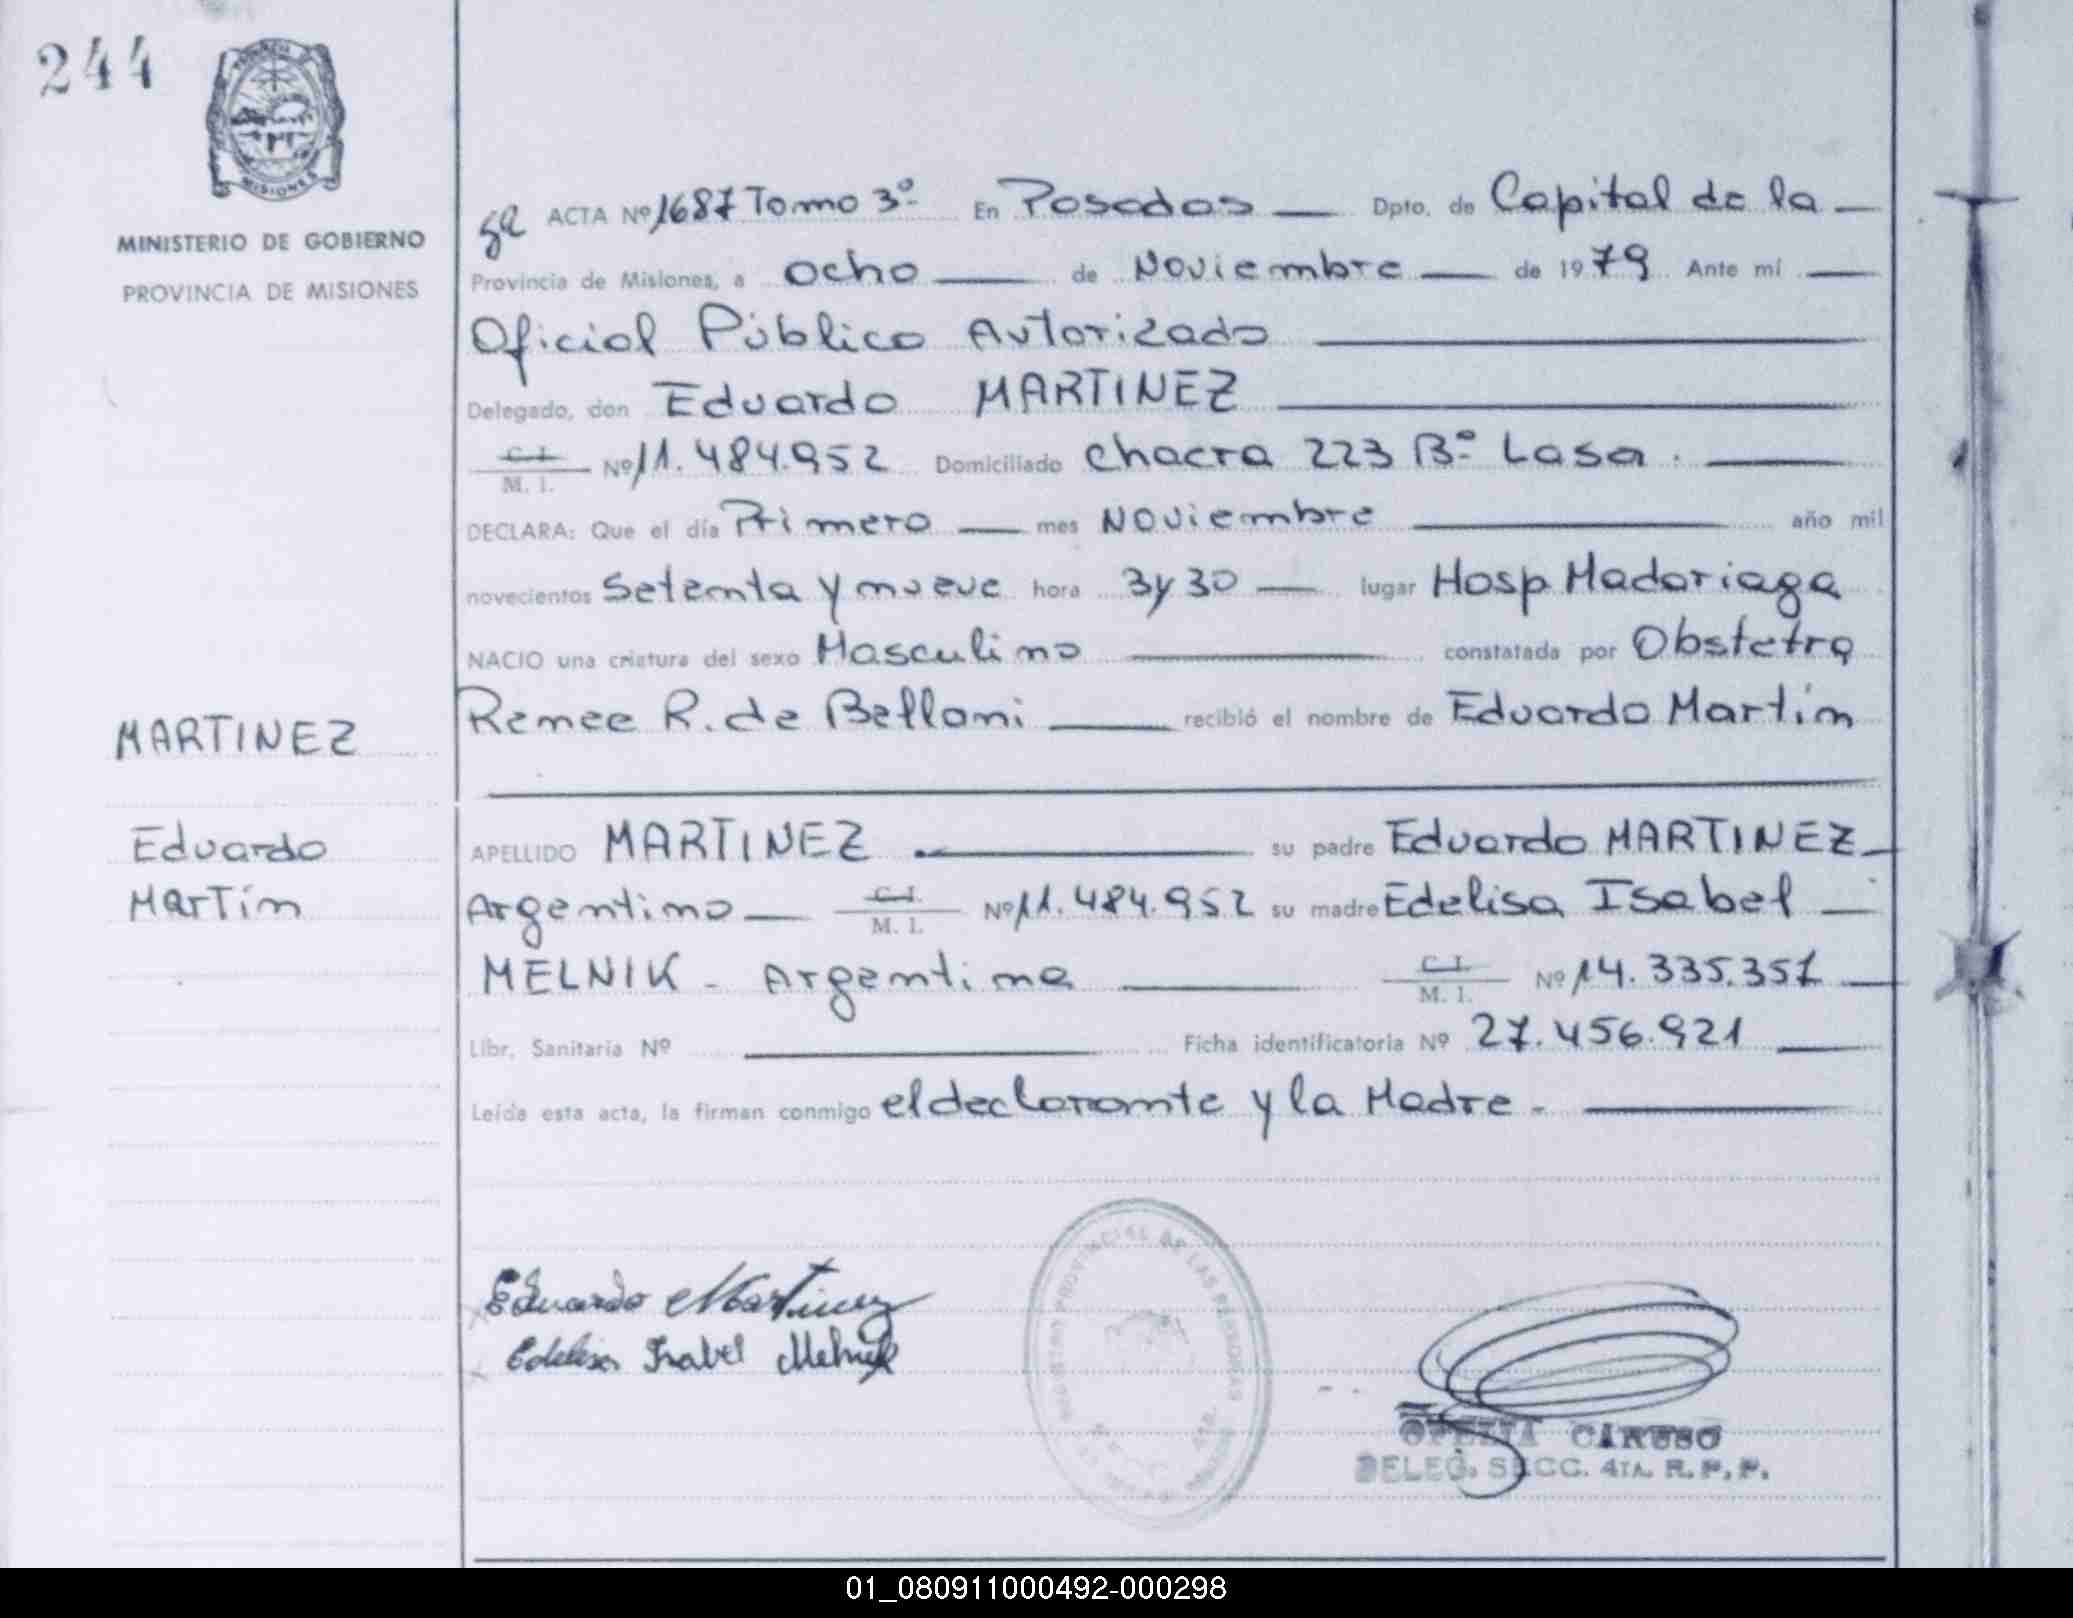 244
MISIONES
MINISTERIO DE GOBIERNO
PROVINCIA DE MISIONES
ga ACTA Nº 1687 Tomo 3º En Posadas Dpto. de Capital de la
Provincia de Misiones, a ocho de Noviembre de 1979 Ante mí
Oficial Público Autorizado
Delegado, don Eduardo MARTINEZ
C.I. M. I. Nº 11.484.952 Domiciliado Chacra 223 Bº Lasa.
DECLARA: Que el día Primero mes Noviembre año mil
novecientos Setenta y nueve hora 3 y 30 lugar Hosp. Madariaga
NACIO una criatura del sexo Masculino constatada por Obstetra
MARTINEZ
Renee R. de Belloni recibió el nombre de Eduardo Martín
Eduardo
Martín
APELLIDO MARTINEZ su padre Eduardo MARTINEZ
Argentino C.I. M. I. Nº 11.484.952 su madre Edelisa Isabel
MELNIK - Argentina C.I. M. I. Nº 14.335.357
Libr. Sanitaria Nº Ficha identificatoria Nº 27.456.921
Leída esta acta, la firman conmigo el declarante y la Madre.
Eduardo Martinez
Edelisa Isabel Melnik
PROVINCIAL DE LAS PERSONAS
CARUSO
DELEG. SECC. 4TA. R. P. P.
01_080911000492-000298